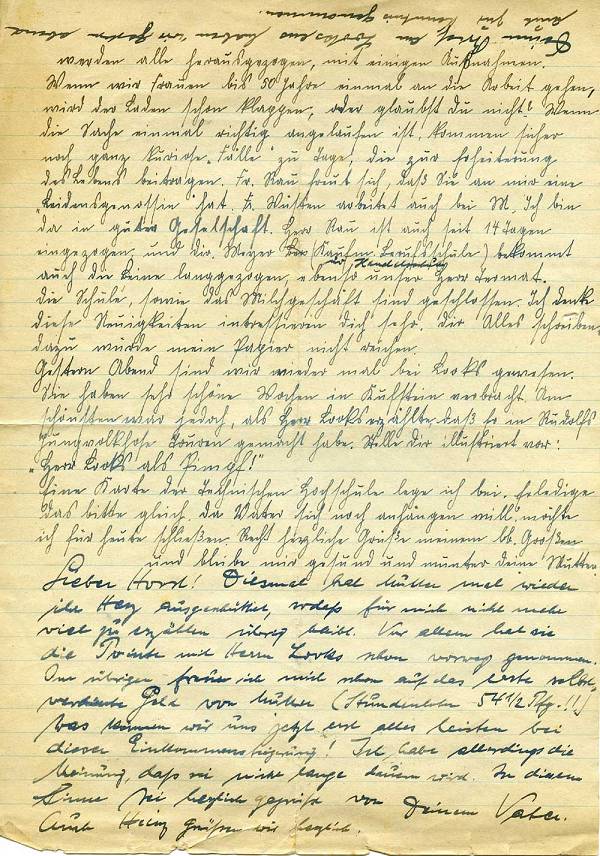 werden alle herausgezogen, mit einigen Ausnahmen.
Wenn wir Frauen bis 50 Jahre einmal an die Arbeit gehen,
wird der Laden schon klappen, oder glaubst Du nicht? Wenn
die Sache einmal richtig angelaufen ist, kommen sicher
noch ganz kuriose „Fälle“ zu Tage, die zur Erheiterung
des Lebens beitragen. Fr. Rau freut sich, daß Sie an mir eine
„Leidensgenossin“ hat. Fr. Wüsten arbeitet auch bei M. Ich bin
da in guter Gesellschaft. Herr Rau ist auch seit 14 Tagen
eingezogen, und Dir. Meyer (Kaufm. Berufsschule) bekommt
auch die Beine langgezogen, ebenso unser Herr
Die Schule, sowie das Milchgeschäft sind geschlossen. Ich denke
diese Neuigkeiten interessieren Dich sehr. Dir Alles schreiben,
dazu würde mein Papier nicht reichen.
Gestern Abend sind wir wieder mal bei Looks gewesen.
Sie haben sehr schöne Wochen in Kufstein verbracht. Am
schönsten war jedoch, als Herr Looks erzählte, daß Er in Rudolfs
Jungvolkhose Touren gemacht habe. Stelle Dir illustriert vor:
„Herr Looks als Pimpf!“
Eine Karte der Technischen Hochschule lege ich bei. Erledige
das bitte gleich. Da Vater sich noch anhängen will, möchte
ich für heute schließen. Recht herzliche Grüße meinem lb. Großen
und bleibe mir gesund und munter Deine Mutter
Lieber Horst! Diesmal hat Mutter mal wieder
ihr Herz ausgeschüttet, sodaß für mich nicht mehr
viel zu erzählen übrig bleibt. Vor allem hat sie
die Pointe mit Herrn Looks schon vorweg genommen.
Im übrigen freue ich mich schon auf das erste selbst-
verdiente Geld von Mutter (Stundenlohn 54 1/2 Pfg.!!)
Was können wir uns jetzt erst alles leisten bei
dieser Einkommensteigerung! Ich habe allerdings die
Meinung, daß sie nicht lange dauern wird. In diesem
Sinne sei herzlich gegrüßt von Deinem Vater.
Auch Heinz grüßen wir herzlich.
Deinen Brief an Looksens haben wir gestern abend
auch zur Kenntnis genommen.